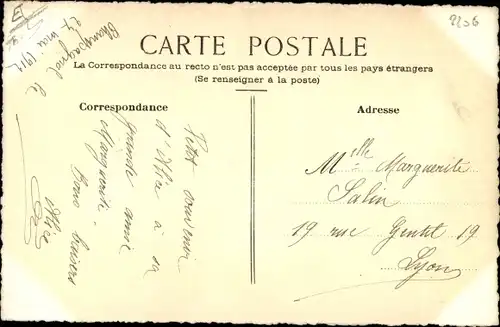 Champagnol le
27 mai 1912
2206
CARTE POSTALE
La Correspondance au recto n'est pas acceptée par tous les pays étrangers
(Se renseigner à la poste)
Correspondance
Petit souvenir
d'Alice à sa
grande amie
Marguerite.
Bons baisers
Alice
Adresse
Melle Marguerite
Salin
19 rue Gentil 19
Lyon